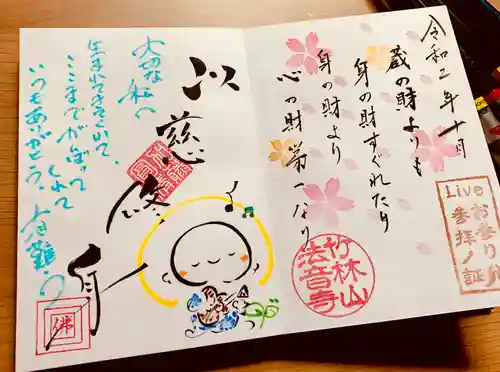 令和二年十月
蔵の財よりも
身の財すぐれたり
身の財より
心の財第一なり
竹林山
法音寺
Live
お参り
参拝ノ証
以慈修身
大切な私へ
生まれてきてくれて、
ここまでがんばって
くれて
いつもありがとう。有難う
佛